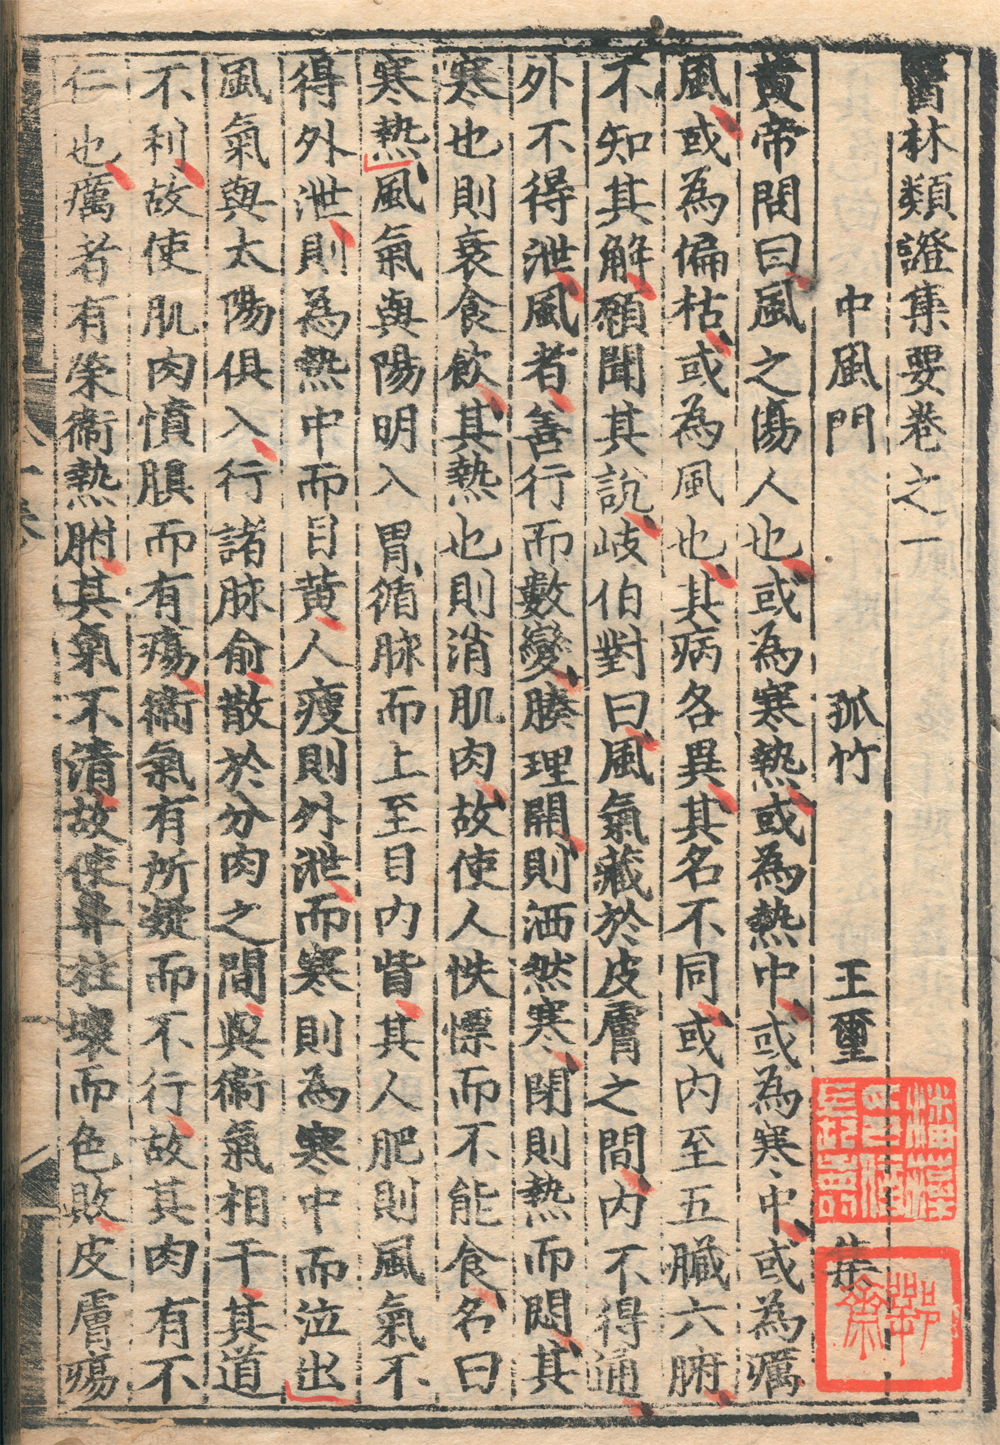 醫林類證集要卷之一
中風門 孤竹 王璽 集
黃帝問曰風之傷人也或為寒熱或為熱中或為寒中或為癘
風或為偏枯或為風也其病各異其名不同或內至五臟六腑
不知其解願聞其說岐伯對曰風氣藏於皮膚之間內不得通
外不得泄風者善行而數變腠理開則洒然寒閉則熱而悶其
寒也則衰食飲其熱也則消肌肉故使人怢慄而不能食名曰
寒熱風氣與陽明入胃循脉而上至目內眥其人肥則風氣不
得外泄則為熱中而目黃人瘦則外泄而寒則為寒中而泣出
風氣與太陽俱入行諸脉俞散於分肉之間與衞氣相干其道
不利故使肌肉憤䐜而有瘍衞氣有所凝而不行故其肉有不
仁也癘者有榮衞熱胕其氣不清故使鼻柱壞而色敗皮膚瘍